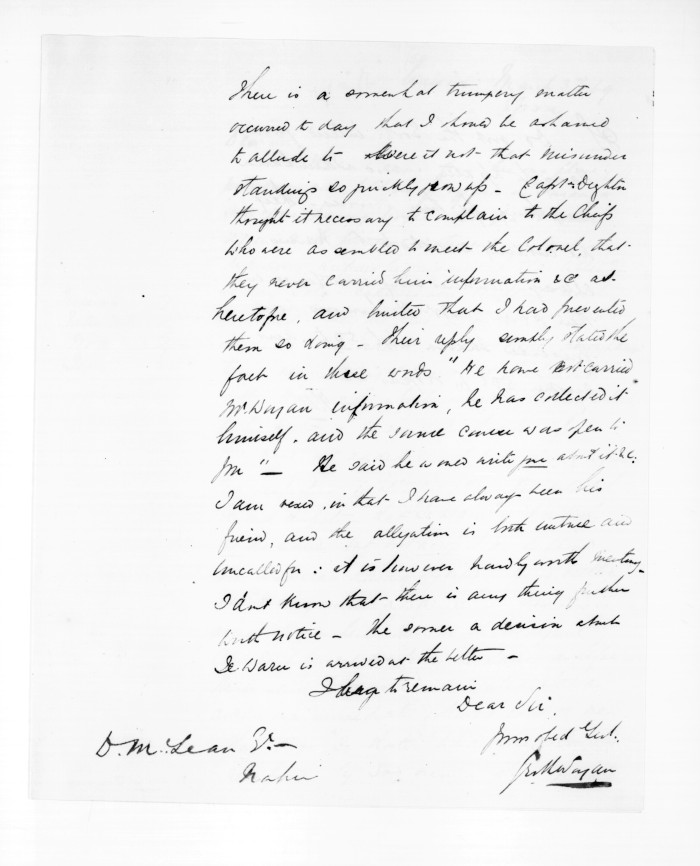 There is a somewhat trumpery matter
occurred to day that I should be ashamed
to allude to were it not that misunder
standings so quickly grow up - Captn Deighton
thought it necessary to complain to the Chiefs
who were assembled to meet the Colonel, that
they never carried him information &c as
heretofore, and hinted that I had prevented
them so doing - Their reply simply stated the
fact in these words "We have not carried
Mr Worgan information, he has collected it
himself, and the same course was open to
you" - He said he would write you about it &c.
I am vexed, in that I have always been his
friend, and the allegation is both untrue and
uncalled for: it is however hardly worth
I don't know that there is any thing further
worth notice - The sooner a decision about
is arrived at the better -
I beg to remain
Dear Sir,
Yours obed Servt.
Geo Worgan
D. McLean Esq -
Napier